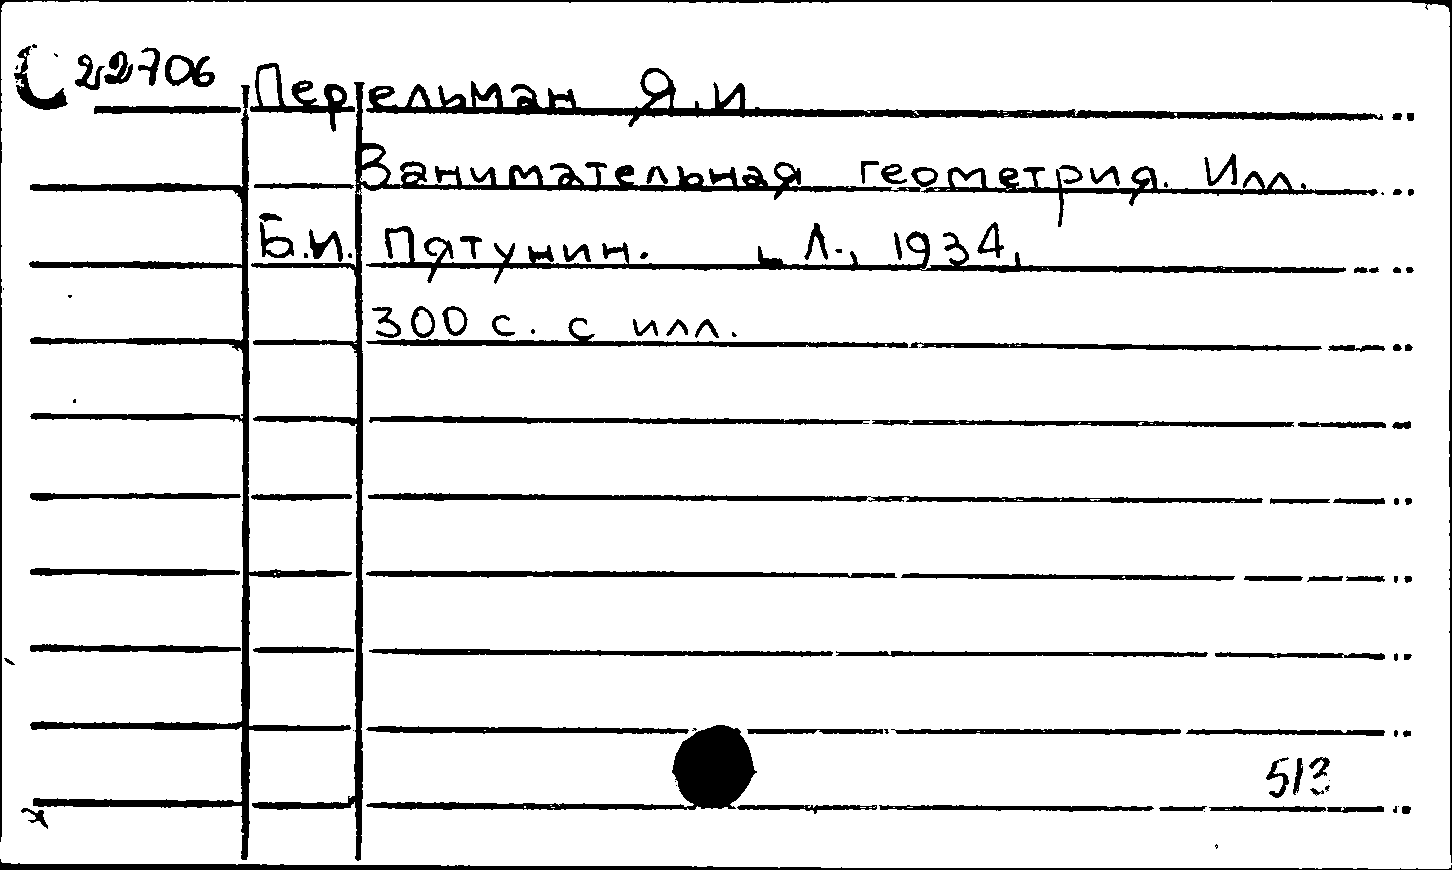 С 22706 Перельман Я.И.
Занимательная геометрия. Илл.
Б.И. Пятунин. Л., 1934,
300 с. с илл.
513